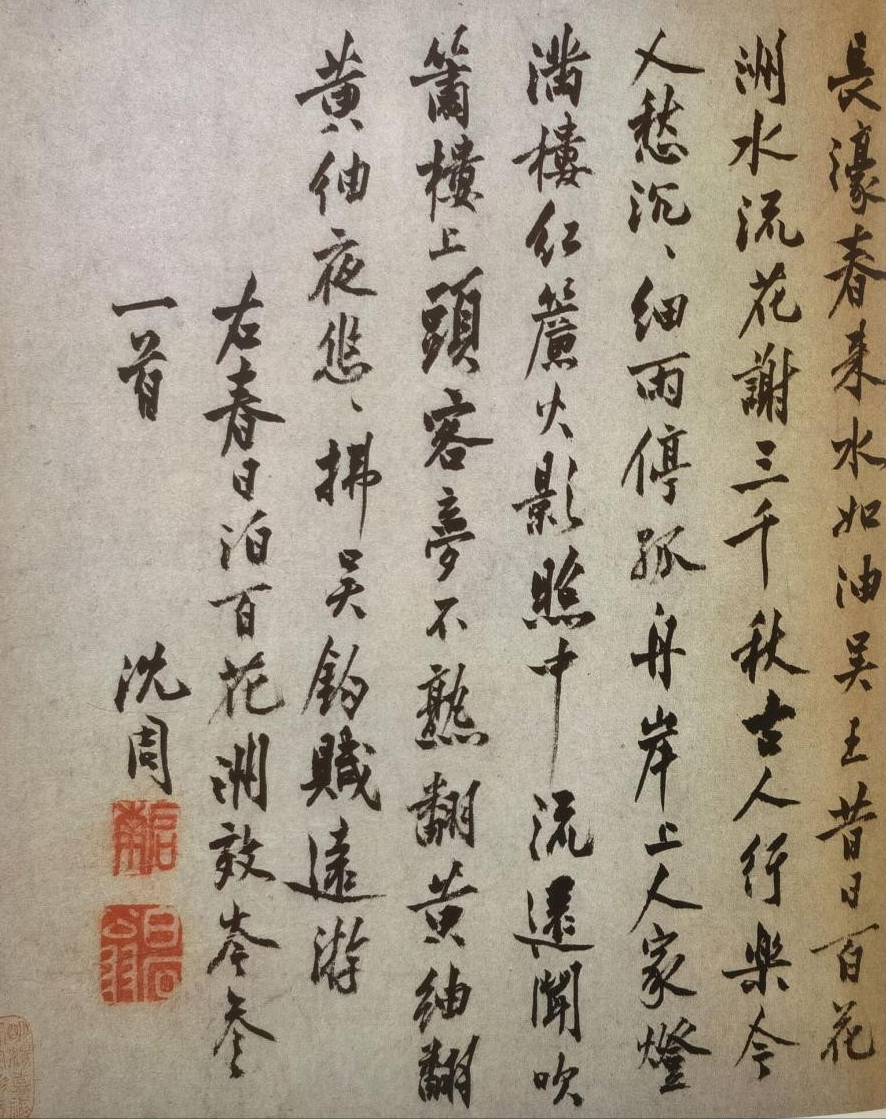 長濠春来水如油吴王昔日百花
洲水流花謝三千秋古人行樂今
人愁沉、細雨停孤舟岸上人家燈
满樓紅簾火影照中流還聞吹
簫樓上頭客夢不熟翻黄紬翻
黄紬夜悠、拂吴鈎賦遠游
右春日泊百花洲效岑参
一首
沈周
啓南
白石翁